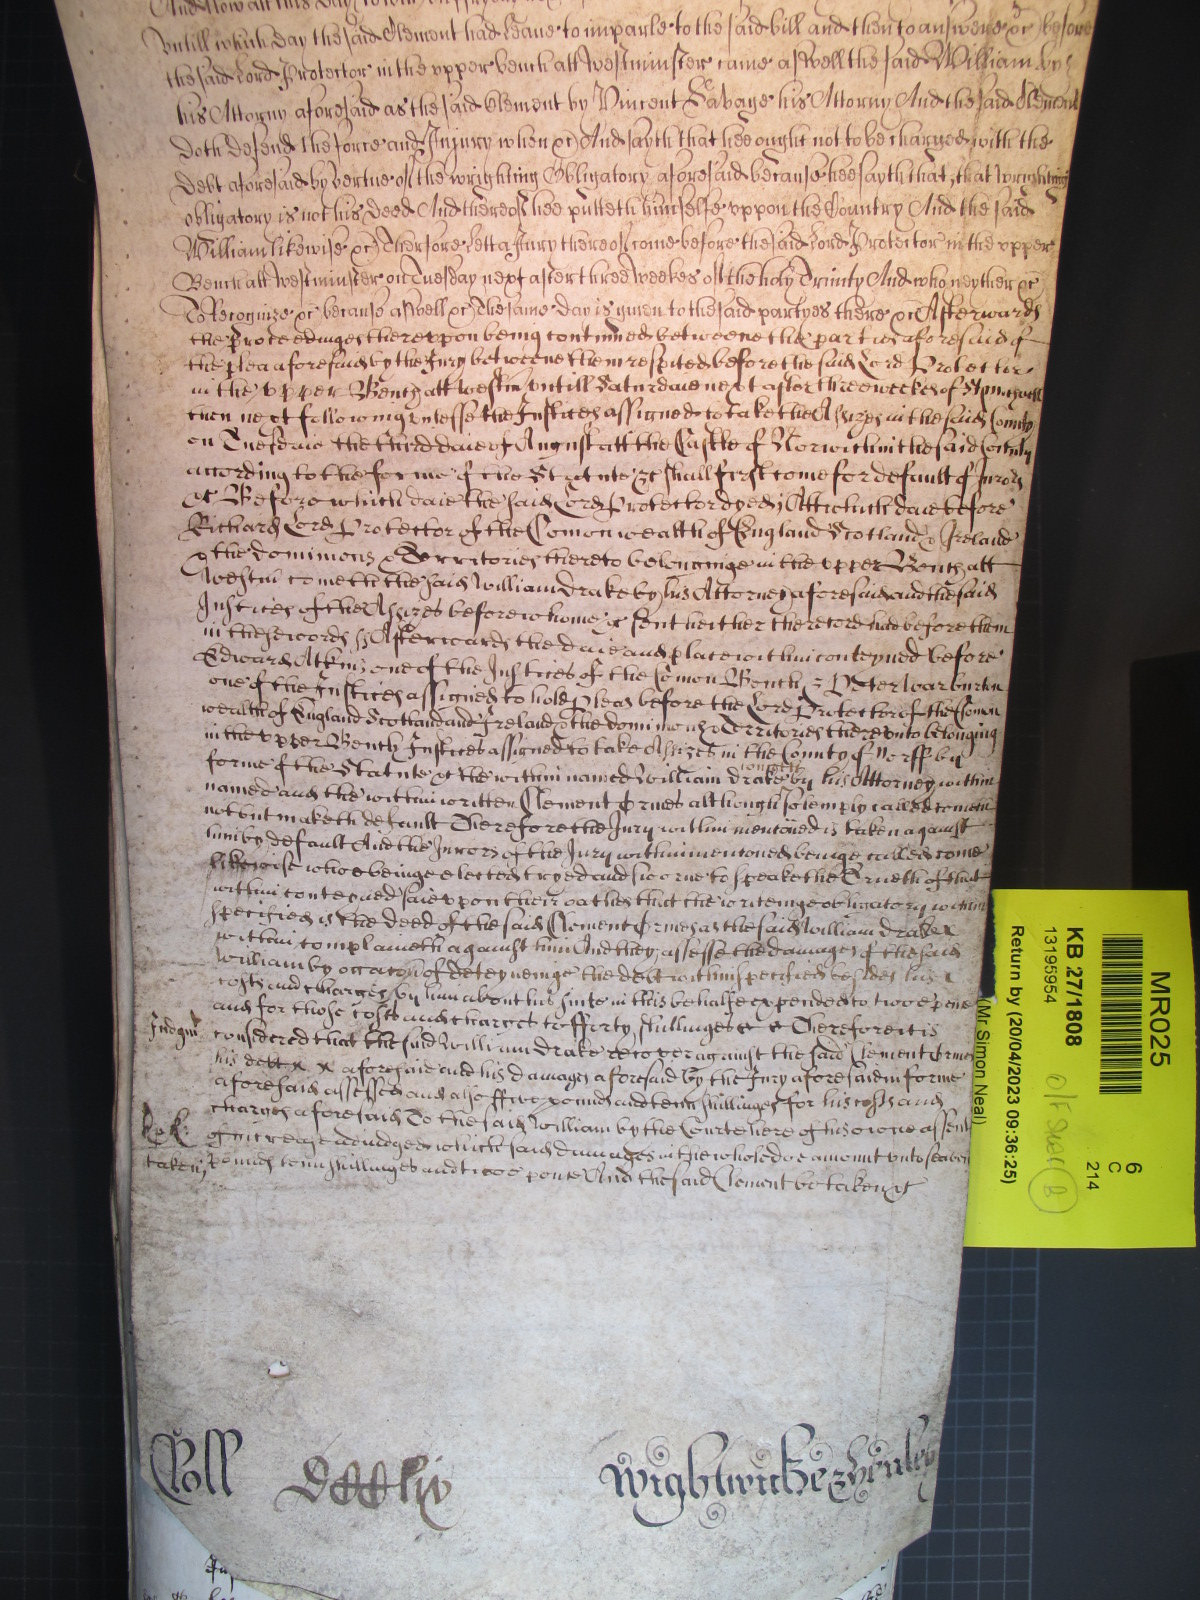 untill which day the said Clement had Leave to imparle to the said bill and then to answere &c before
the said Lord Protector in the upper bench att Westminster came aswell the said William by
his Attorny aforesaid as the said Clement by Vincent Savage his Attorny And the said Clement
doth defend the force and Injury when &c And sayth that hee ought not to be charged with the
Debt aforesaid by vertue of the wrighting Obligatory aforesaid because hee sayth that, that wrighting
obligatory is not his deed And thereof hee putteth himselfe uppon the Country And the said
William likewise &c Therefore Lett a Jury thereof come before the said Lord Protector in the upper
Bench att Westminster on Tuesday next after three weekes of the holy Trinity And who neyther &c
To Recognize &c because aswell &c The same day is given to the said partyes there &c Afterwards
the Proceedinges thereupon being continued betweene the parties aforesaid of
the plea aforesaid by the Jury betweene them respited before the said Lord Protector
in the upper Bench att Westm untill Saturdaie next after three weekes of St Michaell
then next following unlesse the Justices assigned to take the Assizes in the said County
on Tuesdaie the third daie of August att the Castle of Norwich in the said County
according to the forme of the Statute &c shall first come for default of Jurors
&c Before which daie the said Lord Protector dyed Att which daie before
Richard Lord Protector of the Comonwealth of England Scotland & Ireland
& the dominions & Territories thereto belonginge in the upper Bench att
Westm cometh the said William Drake by his Attorney aforesaid and the said
Justices of the Assizes before whome &c sent hether there record had before them
in these words ss Afterwards the daie and place within conteyned before
Edward Atkins one of the Justices of the Comon Bench & Peter Warburton
one of the Justices assigned to hold Pleas before the Lord Protector of the Comon
wealth of England Scotland and Ireland & the dominions & Territories thereunto belonging
in the upper Bench Justices assigned to take Assizes in the County of Norff by
forme of the Statute &c the within named William Drake cometh by his Attorney within
named and the within written Clement Ormes although solemply called cometh
not but maketh default Therefore the Jury within mentioned is taken against
him by default And the Jurors of the Jury within mentioned beinge called come
likewise who beinge elected tryed and sworne to speake the Trueth of that
within conteyned saie upon their oathes that the writeinge obligatory within
specified is the deed of the said Clement Ormes as the said William Drake
within complaineth against him And they assesse the damages of the said
William by occacion of deteyneinge the debt within specified besides his
costs and charges by him about his suite in this behalfe expended to twoe pence
and for those costs and charges to fforty shillinges Therefore it is
Judgmt
considered that the said William Drake recover against the said Clement Ormes
his debt aforesaid and his damages aforesaid by the Jury aforesaid in forme
aforesaid assessed and also ffive pounds and tenn shillinges for his costs and
charges aforesaid To the said William by the Courte here of his owne assent
of increase adiudged which said damages in the whole doe amount unto seaven
taken
pounds tenn shillinges and twoe pence And the said Clement be taken &c
Roll
DCCCliv
Wightwicke & Henley
MR025
6
C
214
KB 27/1808
13195954
O/F Shelf B
Return by (20/04/2023 09:36:25)
(Mr Simon Neal)